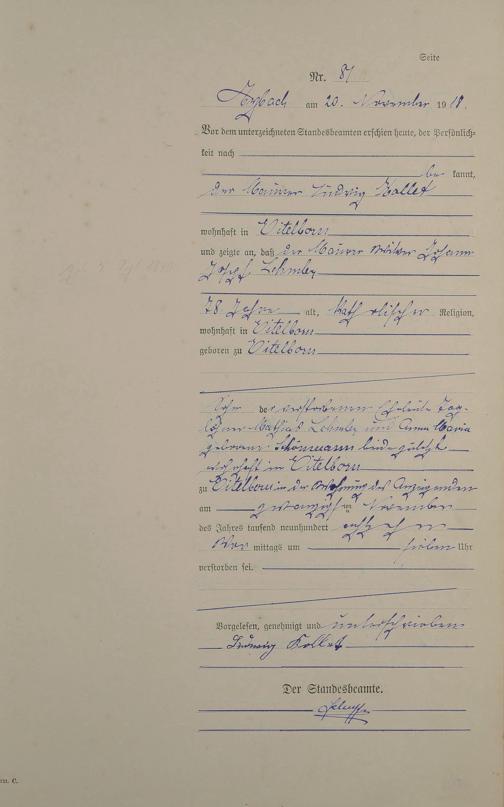 Seite
Nr. 81
am 20. November 1918.
Vor dem unterzeichneten Standesbeamten erschien heute, der Persönlich-
keit nach
be kannt,
der Maurer Ludwig Kollet
wohnhaft in Vitelborn
und zeigte an, daß der Maurer Witwer Johann
Josef Lehmler
78 Jahre alt, katholischer Religion,
wohnhaft in Vitelborn
geboren zu Vitelborn
Sohn der verstorbenen Eheleute Tag-
löhner Mathias Lehmler und Anna Maria
geborene Schönmann beide zuletzt
wohnhaft in Vitelborn
zu Vitelborn in der Wohnung des Anzeigenden
am zwanzigsten November
des Jahres tausend neunhundert achtzehn
Vor mittags um sieben Uhr
verstorben sei.
Vorgelesen, genehmigt und unterschrieben
Ludwig Kollet
Der Standesbeamte.